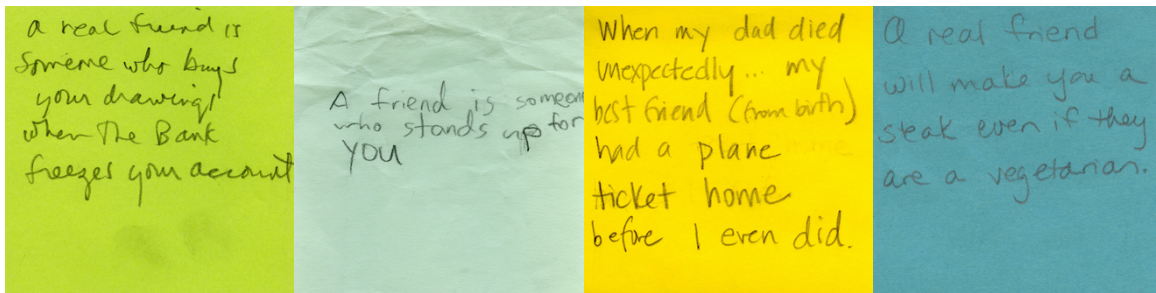 a real friend is
someone who buys
your drawings
when the Bank
freezes your account
A friend is someone
who stands up for
you
When my dad died
unexpectedly... my
best friend (from birth)
had a plane home
ticket home
before I even did.
A real friend
will make you a
steak even if they
are a vegetarian.